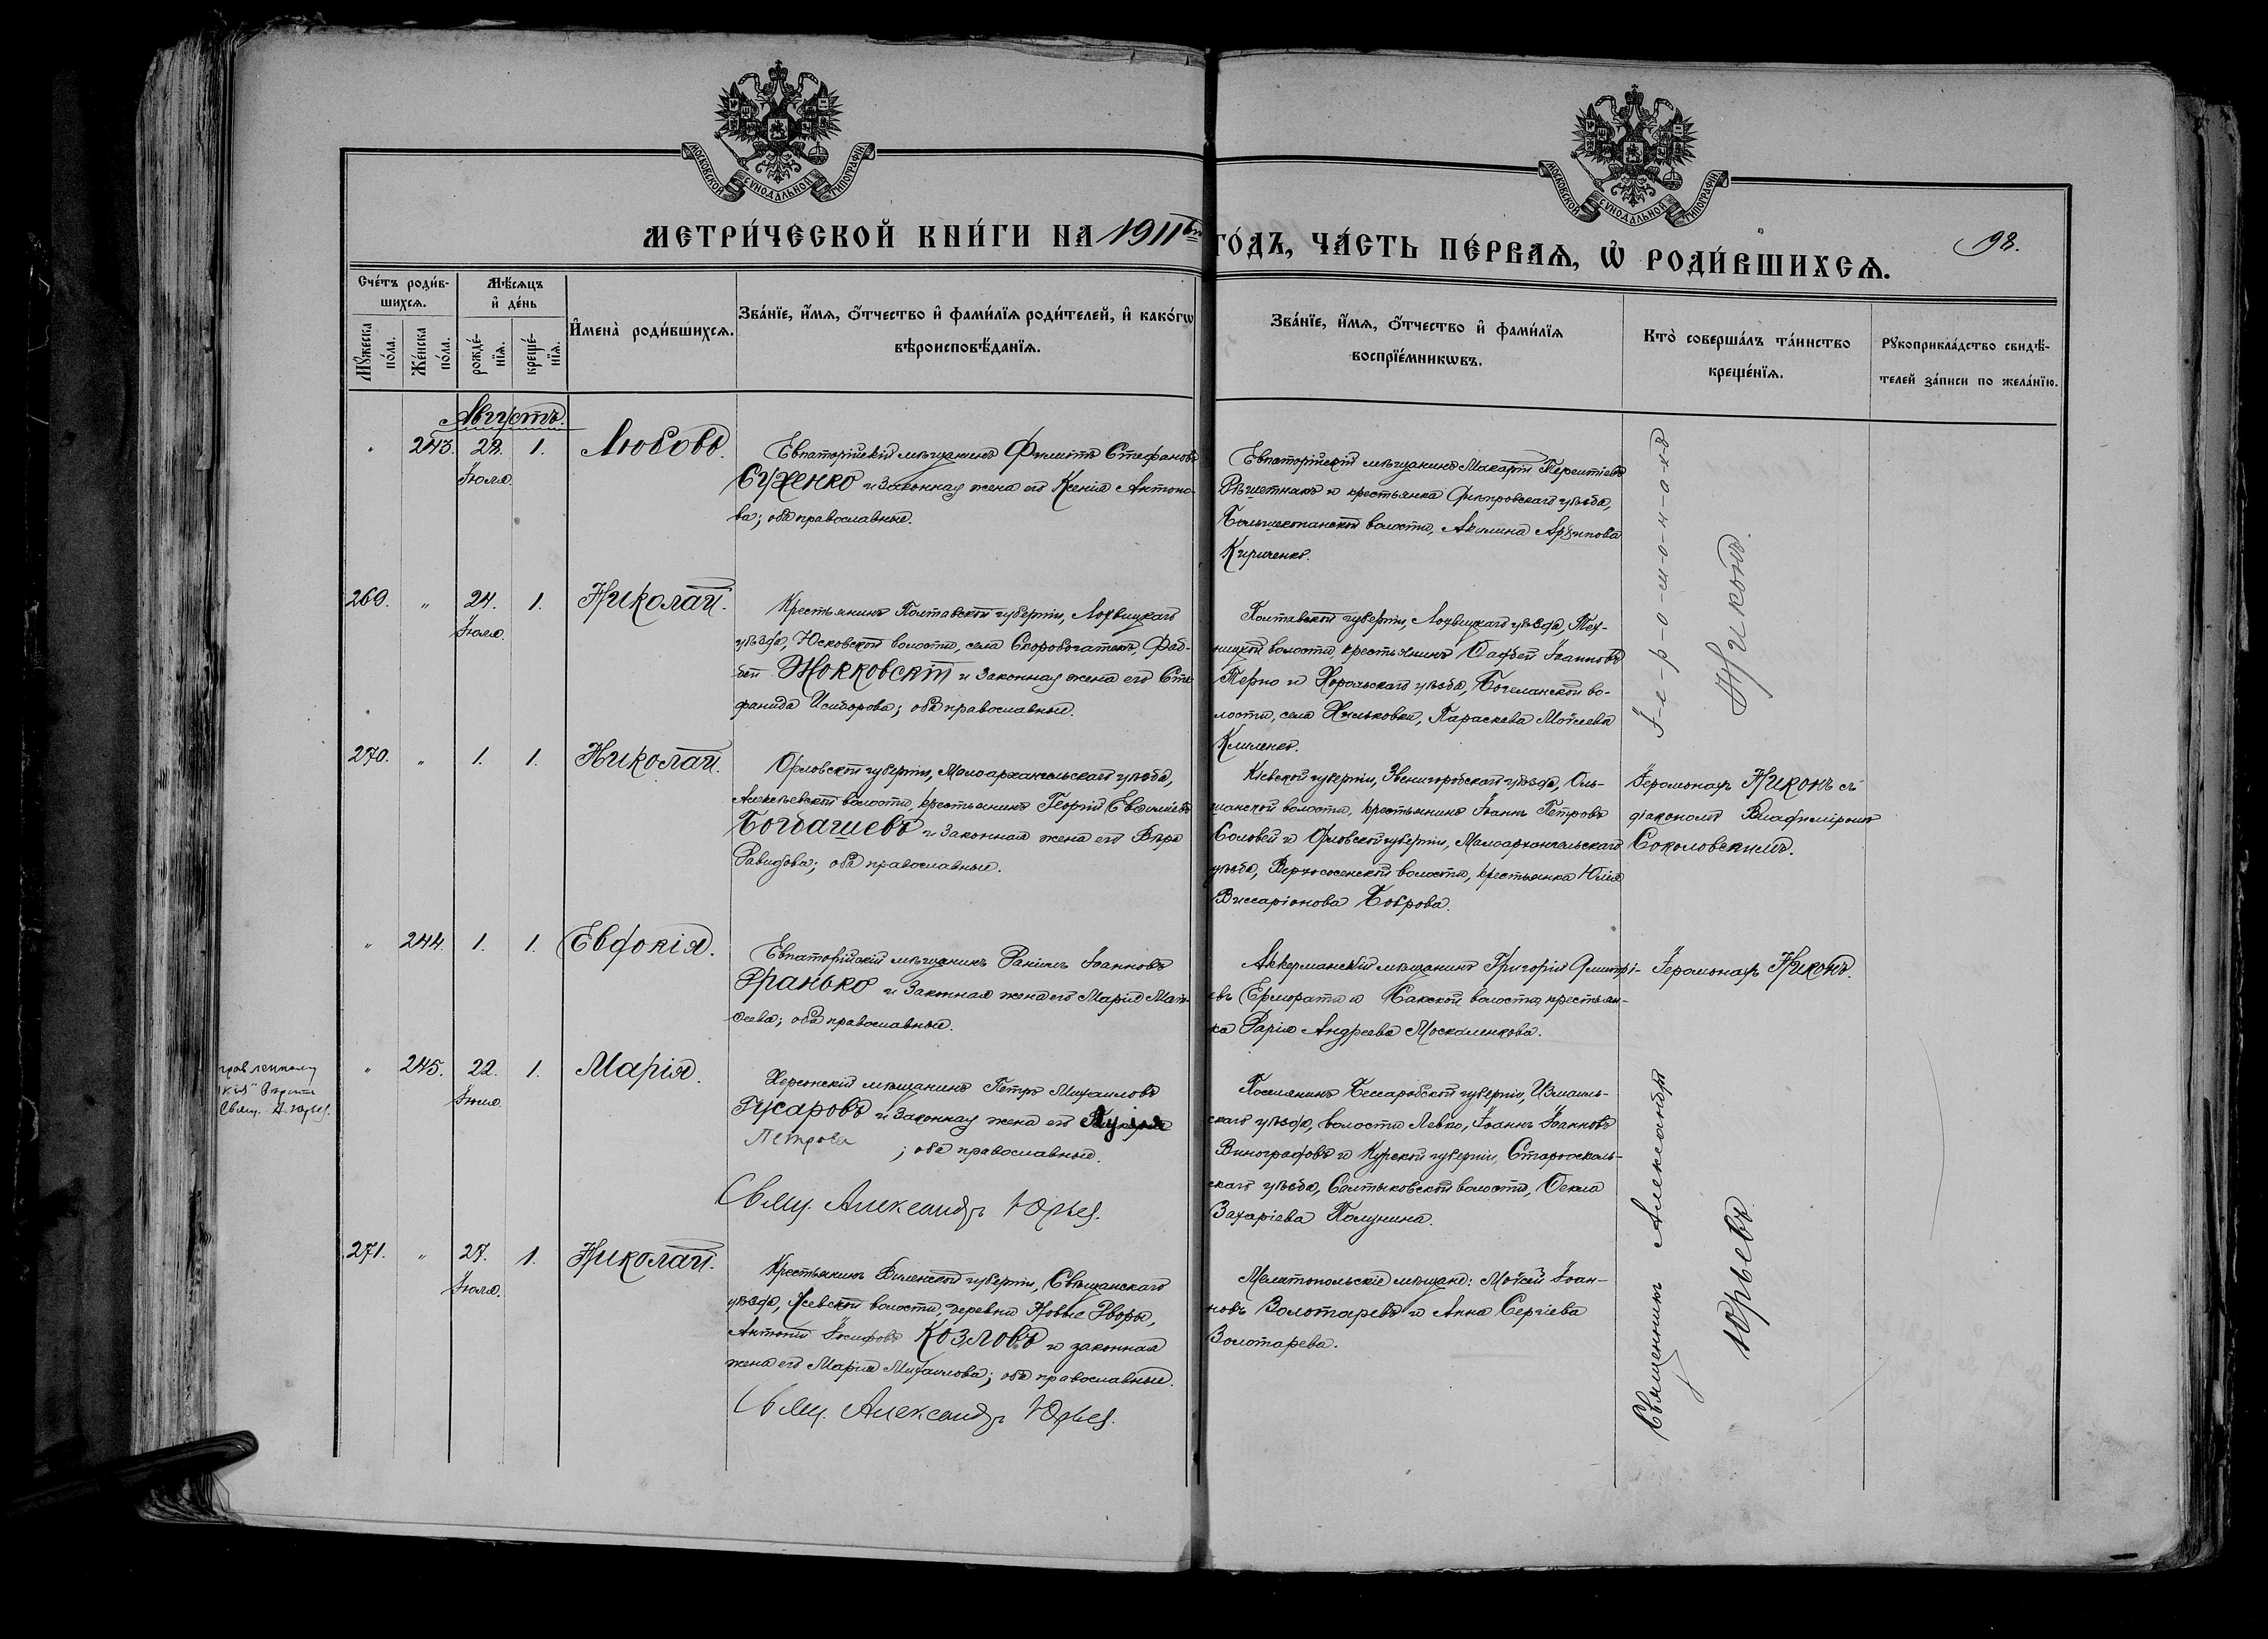 МОСКОВСКОЙ СѴНОДАЛЬНОЙ ТИПОГРАФІИ
МОСКОВСКОЙ СѴНОДАЛЬНОЙ ТИПОГРАФІИ
МЕТРИ́ЧЕСКОЙ КНИ́ГИ НА 1911ый ГО́ДЪ, ЧА́СТЬ ПЕ́РВАѦ, Ѡ҆ РОДИ́ВШИХСѦ.
98.
Сче́тъ роди́в-
шихсѧ.
Мꙋ́жеска по́ла.
Же́нска по́ла.
Мѣ́сѧцъ
и҆ де́нь
рожде́-
нїѧ.
креще́-
нїѧ.
И҆мена̀ роди́вшихсѧ.
Зва́нїе, и҆́мѧ, ѻ҆́тчество и҆ фами́лїѧ роди́телей, и҆ како́гѡ
вѣроисповѣ́данїѧ.
Зва́нїе, и҆́мѧ, ѻ҆́тчество и҆ фами́лїѧ
воспрїе́мникѡвъ.
Кто̀ соверша́лъ та́инство
креще́нїѧ.
Рꙋкоприкла́дство свидѣ́-
телей за́писи по жела́нїю.
Августъ.
" 243. 28. 1. Любовь.
Іюля.
Евпаторійскій мѣщанинъ Филиппъ Стефановъ
Сухенко и законная жена его Ксенія Антоно-
ва; оба православные.
Евпаторійскій мѣщанинъ Макарій Терентіевъ
Рѣшетнякъ и крестьянка Днѣпровскаго уѣзда,
Большекопанской волости, Акилина Архипова
Кириченко.
І-е-р-о-м-о-н-а-х-ъ
Никонъ.
269. " 24. 1. Николай.
Іюля.
Крестьянинъ Полтавской губерніи, Лохвицкаго
уѣзда, Юсковской волости, села Скоробогатекъ, Фад-
дей Жокковскій и законная жена его Сте-
фанида Исидорова; оба православные.
Полтавской губерніи, Лохвицкаго уѣзда,
волости, крестьянинъ Ѳаддей Іоанновъ
Терно и Хорольскаго уѣзда, во-
лости, села Хильковки, Параскева Моѵсеева
Клименко.
270. " 1. 1. Николай.
Орловской губерніи, Малоархангельскаго уѣзда,
Алексѣевской волости, крестьянинъ Георгій Евѳиміевъ
Богдашевъ и законная жена его Вѣра
Давидова; оба православные.
Кіевской губерніи, Звенигородскаго уѣзда, Оль-
шанской волости, крестьянинъ Іоаннъ Петровъ
Соловей и Орловской губерніи, Малоархангельскаго
уѣзда, Верхососенской волости, крестьянка Юлія
Виссаріонова Боброва.
Іеромонахъ Никонъ съ
діакономъ Владиміромъ
Соколовскимъ.
" 244. 1. 1. Евдокія.
Евпаторійскій мѣщанинъ Даніилъ Іоанновъ
Гранько и законная жена его Марія Мат-
ѳеева; оба православные.
Аккерманскій мѣщанинъ Григорій Димитрі-
евъ и Сакской волости, крестьян-
ка Дарія Андреева Москаленкова.
Іеромонахъ Никонъ.
" 245. 22. 1. Марія.
Іюля.
Херсонскій мѣщанинъ Петръ Михаиловъ
Гусаровъ и законная жена его
Петрова ; оба православные.
Свящ. Александръ Юрьев.
Поселянинъ Бессарабской губерніи, Измаиль-
скаго уѣзда, волости Левко, Іоаннъ Іоанновъ
Виноградовъ и Курской губерніи, Старооскль-
скаго уѣзда, Салтыковской волости, Ѳекла
Захаріева Полунина.
Священникъ Александръ
Юрьевъ
271. " 27. 1. Николай.
Іюля.
Крестьянинъ Виленской губерніи, Свѣнцянскаго
уѣзда, волости, деревни Новые Дворы,
Антоній Іосифовъ Козловъ и законная
жена его Марія Михаилова; оба православные.
Свящ. Александръ Юрьев.
Мелитопольскіе мѣщане: Моѵсей Іоан-
новъ Золотаревъ и Анна Сергіева
Золотарева.